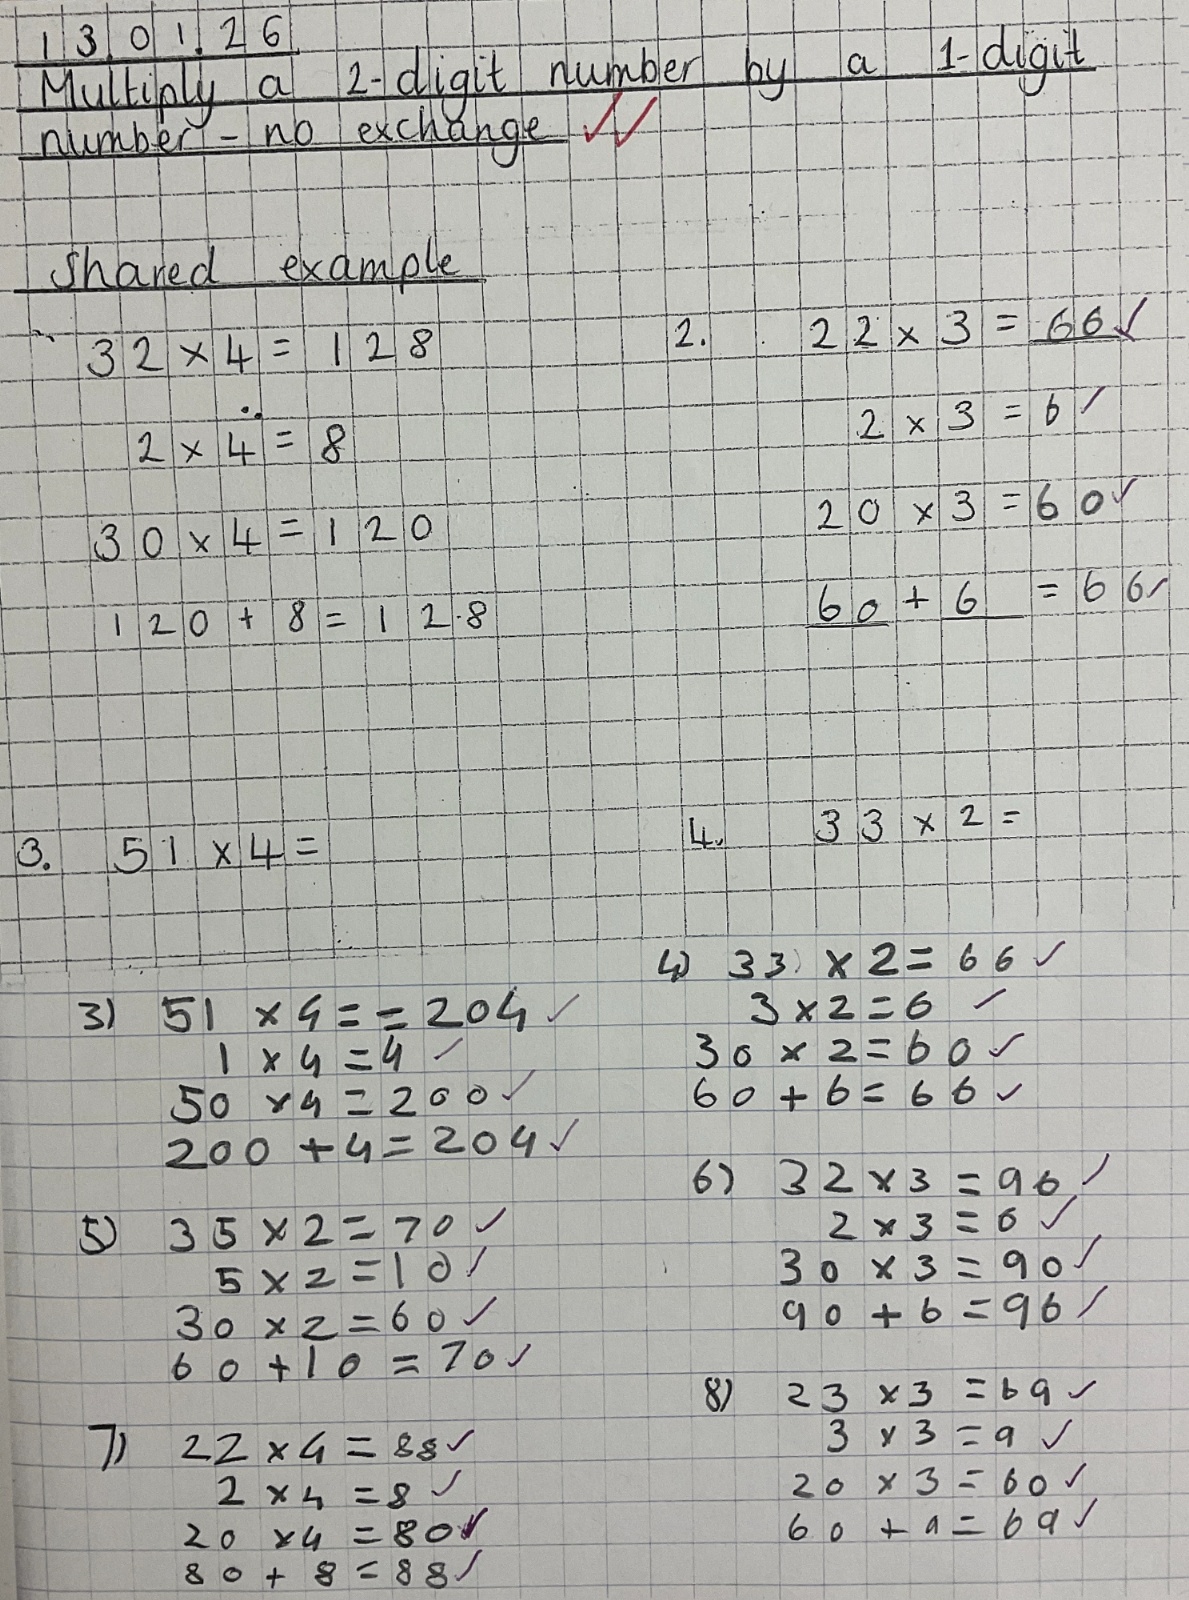 13.01.26
Multiply a 2-digit number by a 1-digit
number - no exchange ✓✓
Shared example
32 × 4 = 128
2 × 4 = 8
30 × 4 = 120
120 + 8 = 128
2. 22 × 3 = 66 ✓
2 × 3 = 6 ✓
20 × 3 = 60 ✓
60 + 6 = 66 ✓
3. 51 × 4 =
4. 33 × 2 =
3) 51 × 4 = = 204 ✓
1 × 4 = 4 ✓
50 × 4 = 200 ✓
200 + 4 = 204 ✓
4) 33 × 2 = 66 ✓
3 × 2 = 6 ✓
30 × 2 = 60 ✓
60 + 6 = 66 ✓
5) 35 × 2 = 70 ✓
5 × 2 = 10 ✓
30 × 2 = 60 ✓
60 + 10 = 70 ✓
6) 32 × 3 = 96 ✓
2 × 3 = 6 ✓
30 × 3 = 90 ✓
90 + 6 = 96 ✓
7) 22 × 4 = 88 ✓
2 × 4 = 8 ✓
20 × 4 = 80 ✓
80 + 8 = 88 ✓
8) 23 × 3 = 69 ✓
3 × 3 = 9 ✓
20 × 3 = 60 ✓
60 + 9 = 69 ✓